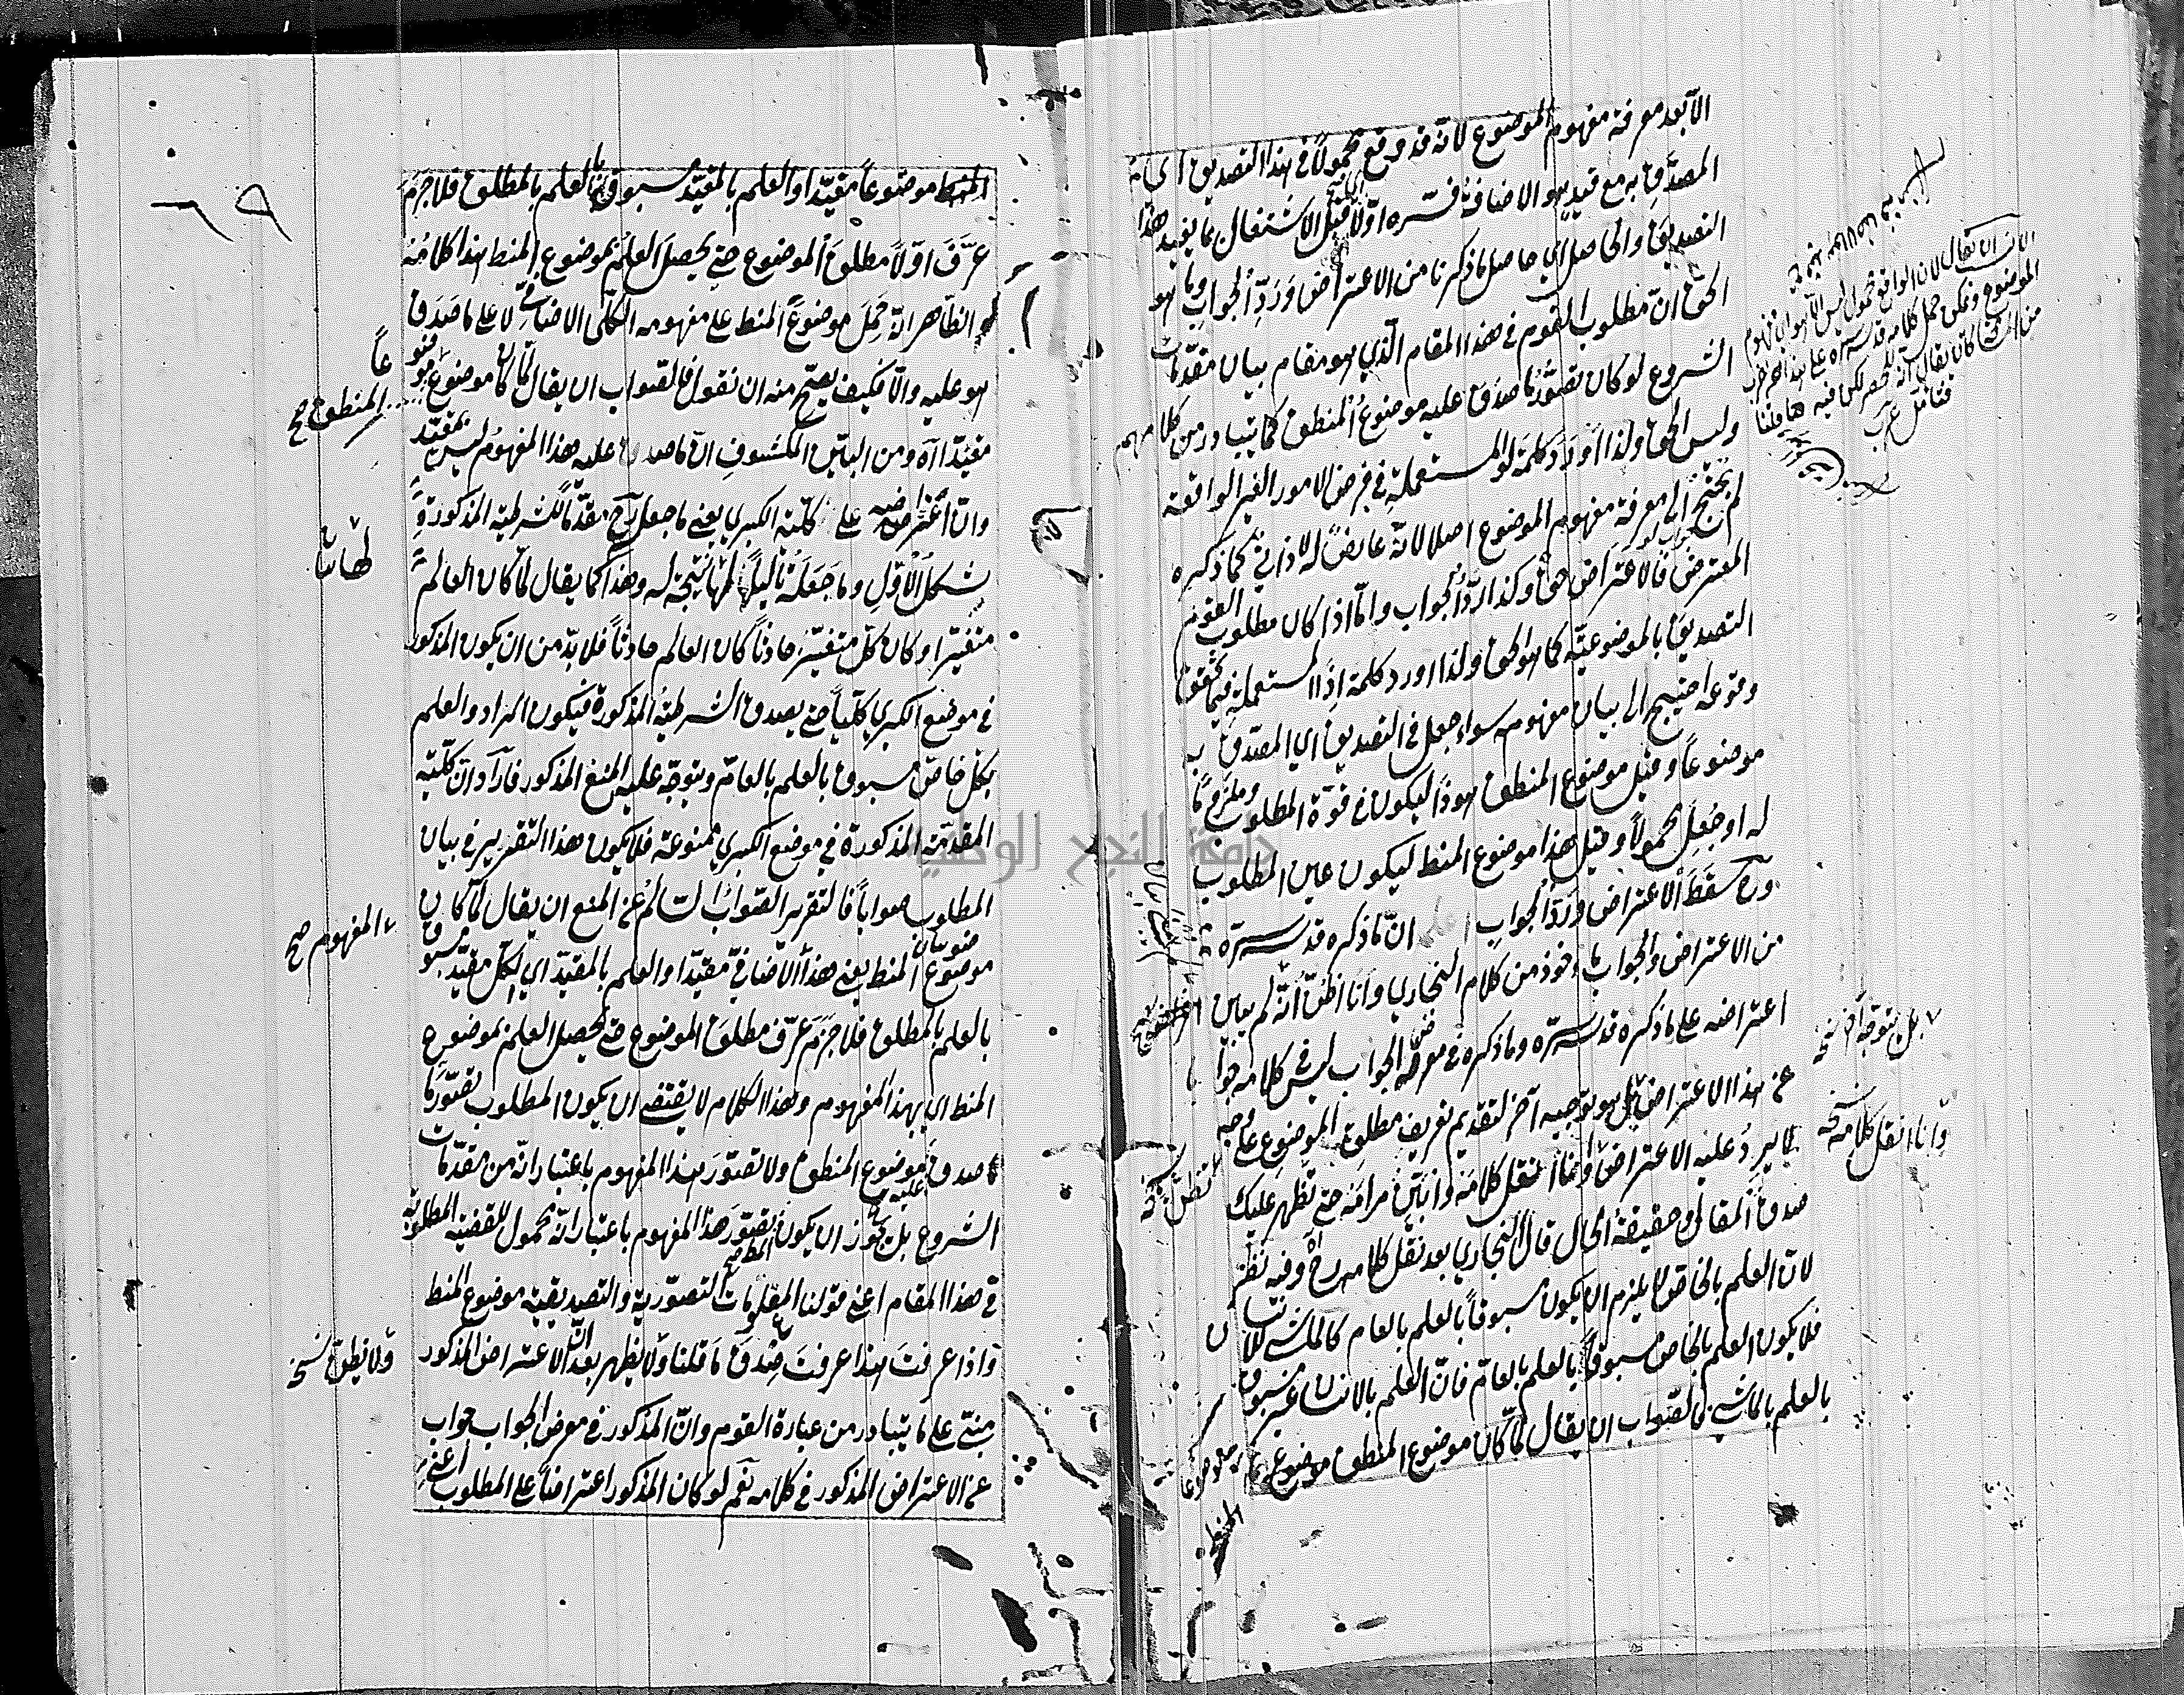 الا بعد معرفة مفهوم الموضوع لانه قد وقع محمولا في هذا التصديق اي
المصدق به مع قيد هو الاضافة فسره اولا قبل الاشتغال بما يفيد هذا
التصديق والحاصل اي حاصل ما ذكرنا من الاعتراض ورد الجواب وما هو
الحق ان مطلوب القوم في هذا المقام الذي هو مقام بيان مقدمات
الشروع لو كان تصور ما صدق عليه موضوع المنطق كما يتبادر من كلامهم
وليس الحق ولذا اورد كلمة لو المستعملة في فرض الامور الغير الواقعة
لم يحتج الى معرفة مفهوم الموضوع اصلا لانه عارض له لا ذاتي كما ذكره
المعترض فالاعتراض حق وكذا رد الجواب واما اذا كان مطلوب القوم
التصديق بالموضوعية كما هو الحق ولذا اورد كلمة اذا المستعملة فيما تحقق
وقوعه احتيج الى بيان مفهومه سواء جعل في التصديق اي المصدق به
موضوعا وقيل موضوع المنطق هو ذا ليكون في قوة المطلوب وملزوما
له او جعل محمولا وقيل هذا موضوع المنط ليكون عين المطلوب
وح سقط الاعتراض ورد الجواب اعلم ان ما ذكره قدس سره
من الاعتراض والجواب ماخوذ من كلام البخاري وانا اظن انه لم يبين
اعتراضه على ما ذكره قدس سره وما ذكره في معرض الجواب ليس في كلامه جوابا
عن هذا الاعتراض بل هو توجيه آخر لتقديم تعريف مطلق الموضوع على وجه
لا يرد عليه الاعتراض وانا انقل كلامه وابين مرامه حتى تظهر عليك
صدق المقال وحقيقة الحال قال البخاري بعد نقل كلامه رح وفيه نظر
لان العلم بالخاص لا يلزم ان يكون مسبوقا بالعلم بالعام كالماشي للانسان
فلا يكون العلم بالخاص مسبوقا بالعلم بالعام فان العلم بالانسان غير مسبوق
بالعلم بالماشي فالصواب ان يقال لما كان موضوع المنطق موضوع
بل يتوجه آخر نسخة
وانا انقل كلامه نسخة
٦٩
المنط موضوعا مقيدا والعلم بالمقيد مسبوق بالعلم بالمطلق فلا جرم
عرف اولا مطلق الموضوع حتى يحصل العلم بموضوع المنط هذا كلامه
والظاهر انه حمل موضوع المنط على مفهومه الكلي الاضافي لا على ما صدق
هو عليه والا فكيف يصح منه ان نقول فالصواب ان يقال لما كان موضوع
مقيدا آه ومن البين المكشوف ان ما صدق عليه هذا المفهوم ليس بمقيد
وان اعتراضه على كلية الكبرى يعني ما جعل رح مقدما للشرطية المذكورة
شكل الاول وما جعله تاليا لها نتيجة له وهذا كما يقال لما كان العالم
متغيرا وكان كل متغير حادثا كان العالم حادثا فلا بد من ان يكون المذكور
في موضع الكبرى كليا حتى يصدق الشرطية المذكورة فيكون المراد والعلم
بكل خاص مسبوق بالعلم بالعام ويتوجه عليه المنع المذكور فاراد ان كلية
المقدمة المذكورة في موضع الكبرى ممنوعة فلا يكون هذا التقرير في بيان
المطلوب صوابا فالتقرير الصواب السالم عن المنع ان يقال لما كان
موضوع المنط يعني هذا الاضافي مقيدا والعلم بالمقيد اي الكل مقيد مسبوق
بالعلم بالمطلق فلا جرم عرف مطلق الموضوع حتى يحصل العلم بموضوع
المنط اي بهذا المفهوم وهذا الكلام لا يقتضي ان يكون المطلوب تصور ما
صدق عليه موضوع المنطق ولا تصور هذا المفهوم باعتبار انه من مقدمات
الشروع بل يجوز ان يكون تصور هذا المفهوم باعتبار انه محمول للقضية المطلوبة
في هذا المقام اعني قولنا المعلومات التصورية والتصديقية موضوع المنط
واذا عرفت هذا عرفت صدق ما قلنا ولا يظهر بعد ان الاعتراض المذكور
مبني على ما يتبادر من عبارة القوم وان المذكور في معرض الجواب جواب
عن الاعتراض المذكور في كلامه نعم لو كان المذكور اعتراضا على المطلوب اعني
المنطوق صح
لها تاليا
المفهوم صح
ولا يطوق نسخة
جامعة النجاح الوطنية